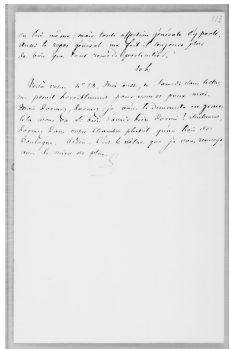 en lui même, mais toute affection générale l'y porte.
Aussi le repos général me fait il toujours plus
de bien que tous remèdes particuliers.
10 h.
Voilà votre n° 58. Moi aussi, ce samedi sans lettre,
me paroit horriblement pour vous et pour moi.
Mais dormez, dormez, je vous le demande en grace.
Cela vous va si bien d'avoir bien dormi !
dormez dans votre chambre plutôt qu'au bois de
Boulogne. Adieu. C'est le nôtre que je vous renvoye
avec le mien de plus.